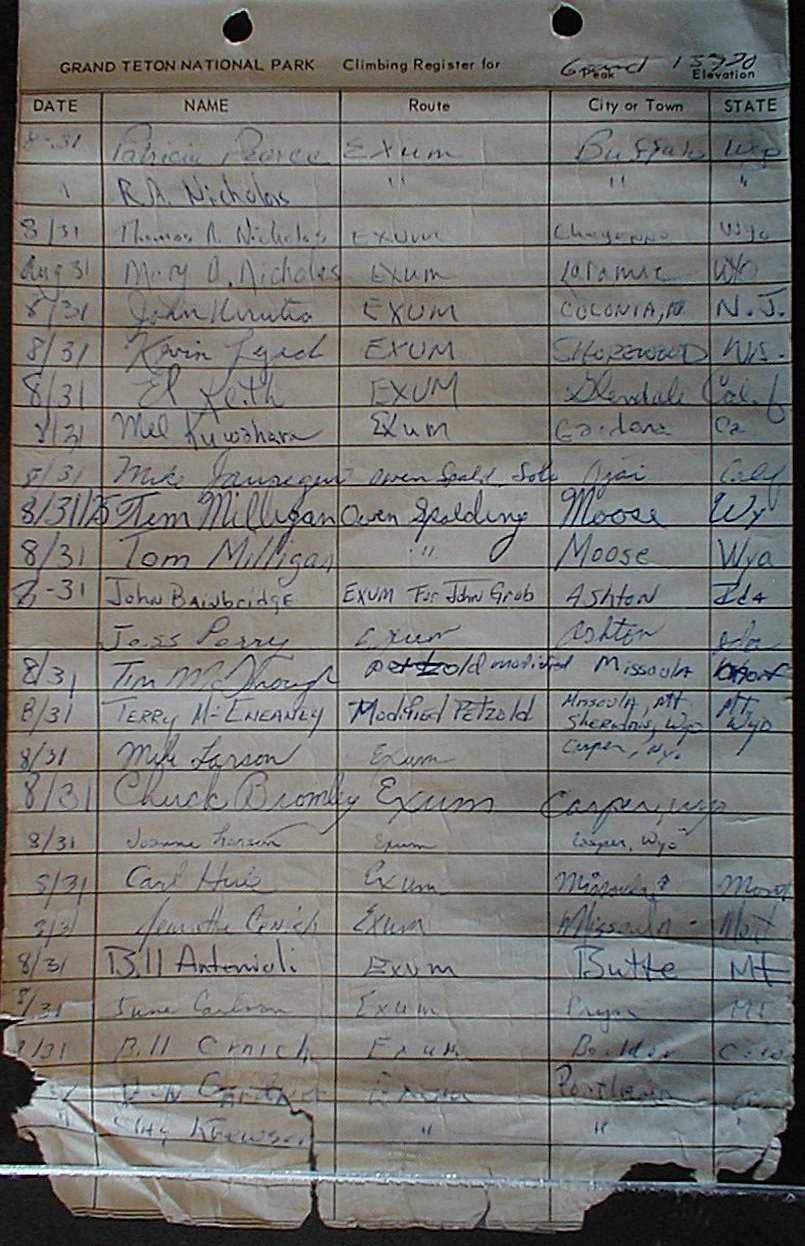 GRAND TETON NATIONAL PARK Climbing Register for Grand 13770
Peak Elevation
DATE NAME Route City or Town STATE
8-31 Patricia Pearce Exum Buffalo Wyo
" R.A. Nicholas " " "
8/31 Thomas A. Nicholas EXUM Cheyenne Wyo
Aug 31 Mary A. Nicholas Exum Laramie WYO
8/31 John EXUM COLONIA, N.J.
8/31 Kevin EXUM SHOREWOOD WIS.
8/31 Keith EXUM Glendale Calif
8/31 Mel Kuwahara Exum Gardena Ca
8/31 Mike Owen Spald. Solo Ojai Calif
8/31/75 Tim Milligan Owen Spalding Moose Wy
8/31 Tom Milligan " Moose Wyo
8-31 John Bainbridge EXUM For John Grob Ashton Ida
Jess Perry Exum Ashton Ida
8/31 Tim modified Missoula
8/31 TERRY McENEANEY Modified PETZOLD Missoula, MT. MT.
SHERIDAN, Wyo Wyo
8/31 Mike Larson Exum Casper, Wy.
8/31 Chuck Bromley Exum Casper, Wyo
8/31 Joanne Larson Exum Casper, Wyo
8/31 Carl Exum Missoula Mont
8/31 Exum Missoula Mont
8/31 Bill Antonioli Exum Butte MT
8/31 June Carlson Exum Pryor MT
8/31 Bill Crnich Exum Boulder Colo
Exum Portland
" " "